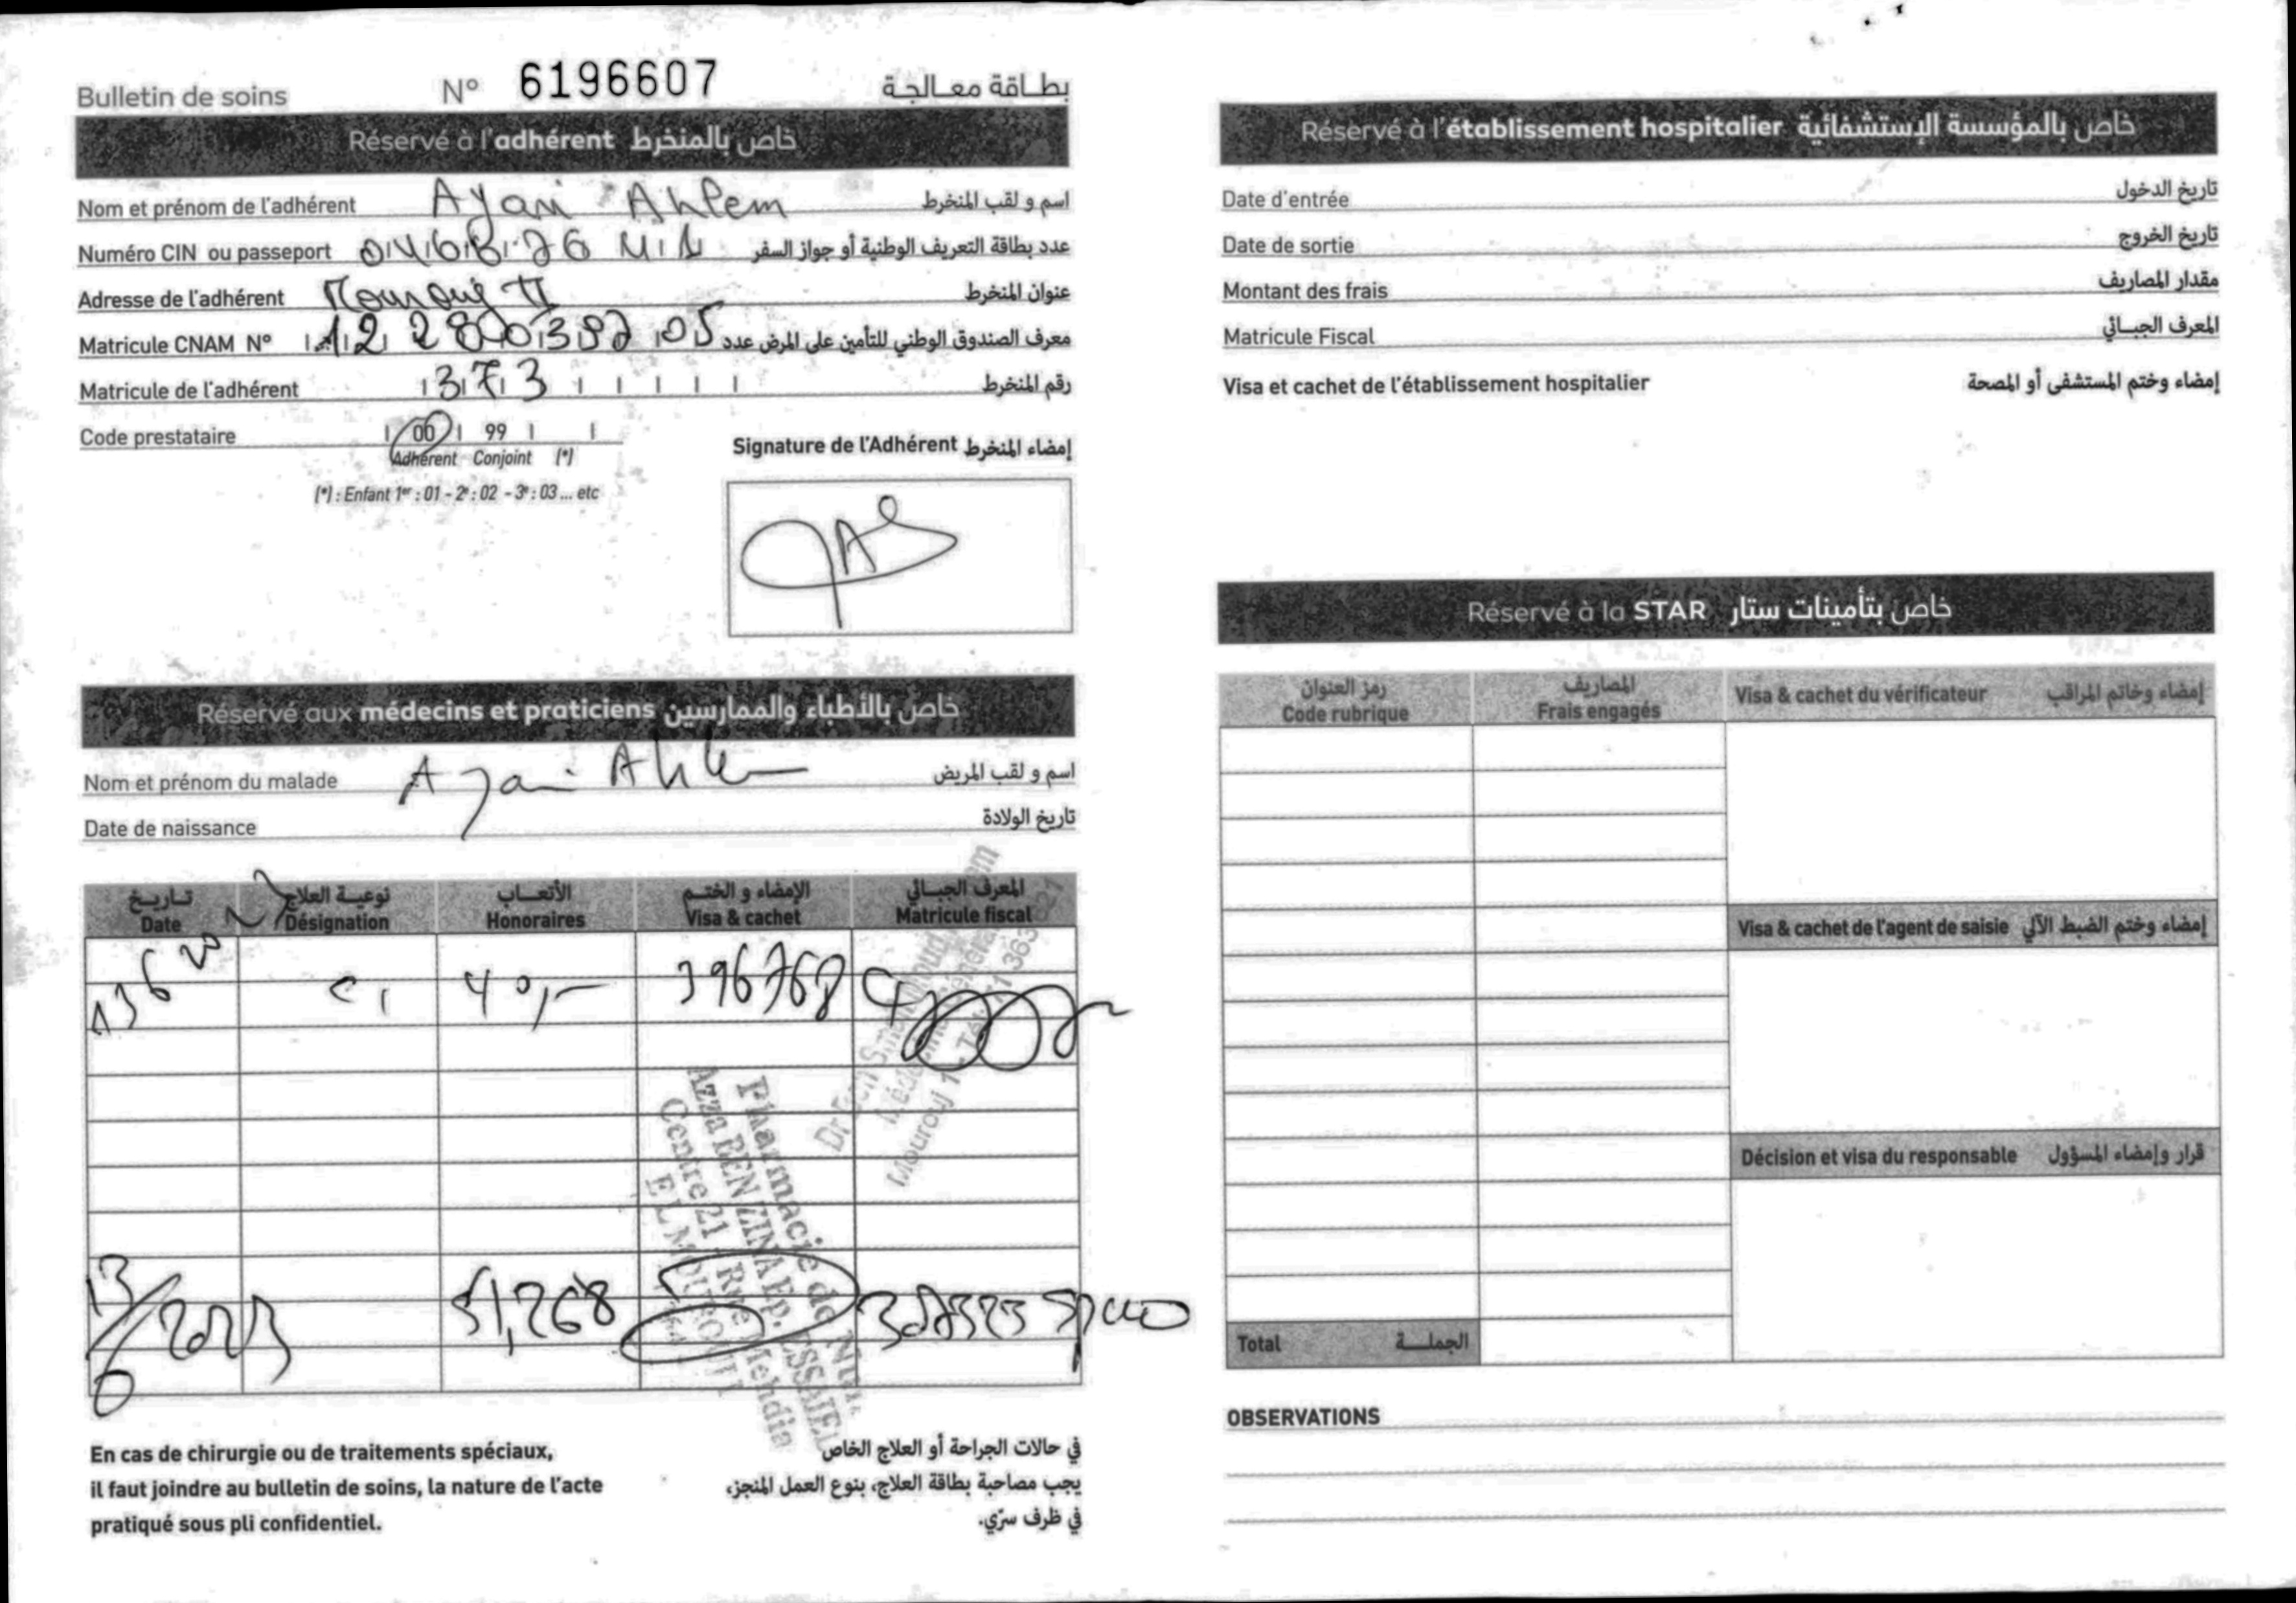 Bulletin de soins N° 6196607 بطاقة معالجة
Réservé à l'adhérent خاص بالمنخرط
Nom et prénom de l'adhérent Ayari Ahlem اسم و لقب المنخرط
Numéro CIN ou passeport عدد بطاقة التعريف الوطنية أو جواز السفر
Adresse de l'adhérent عنوان المنخرط
Matricule CNAM N° معرف الصندوق الوطني للتأمين على المرض عدد
Matricule de l'adhérent 373 رقم المنخرط
Code prestataire 00 99
Adhérent Conjoint (*)
(*) : Enfant 1er : 01 - 2e : 02 - 3e : 03 ... etc
Signature de l'Adhérent إمضاء المنخرط
Réservé aux médecins et praticiens خاص بالأطباء والممارسين
Nom et prénom du malade Ayari Ahlem اسم و لقب المريض
Date de naissance تاريخ الولادة
تاريخ نوعية العلاج الأتعاب الإمضاء و الختم المعرف الجبائي
Date Désignation Honoraires Visa & cachet Matricule fiscal
40,- 396768
Pharmacie de Nuit
Azza BEN ZINA Ep. ESSAIEL
Centre 21 Rue Mehdia
EL MOUROUJ 1
13/6/2023 51,268
En cas de chirurgie ou de traitements spéciaux,
il faut joindre au bulletin de soins, la nature de l'acte
pratiqué sous pli confidentiel.
في حالات الجراحة أو العلاج الخاص
يجب مصاحبة بطاقة العلاج، بنوع العمل المنجز،
في ظرف سرّي.
Réservé à l'établissement hospitalier خاص بالمؤسسة الإستشفائية
Date d'entrée تاريخ الدخول
Date de sortie تاريخ الخروج
Montant des frais مقدار المصاريف
Matricule Fiscal المعرف الجبائي
Visa et cachet de l'établissement hospitalier إمضاء وختم المستشفى أو المصحة
Réservé à la STAR خاص بتأمينات ستار
رمز العنوان المصاريف
Code rubrique Frais engagés Visa & cachet du vérificateur إمضاء وخاتم المراقب
Visa & cachet de l'agent de saisie إمضاء وختم الضبط الآلي
Décision et visa du responsable قرار وإمضاء المسؤول
Total الجملة
OBSERVATIONS